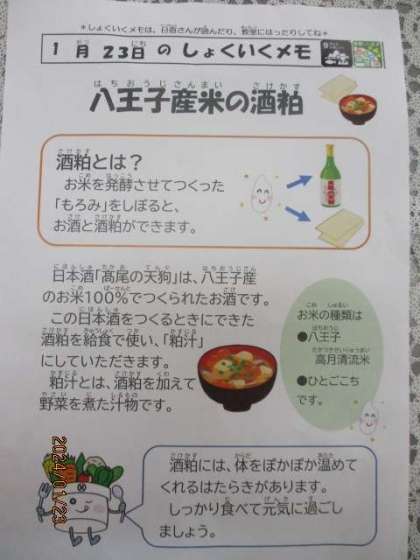 ＊しょくいくメモは、日直さんが読んだり、教室にはったりしてね＊
1月23日のしょくいくメモ
八王子産米の酒粕
酒粕とは？
お米を発酵させてつくった
「もろみ」をしぼると、
お酒と酒粕ができます。
日本酒「髙尾の天狗」は、八王子産
のお米100％でつくられたお酒です。
この日本酒をつくるときにできた
酒粕を給食で使い、「粕汁」
にしていただきます。
粕汁とは、酒粕を加えて
野菜を煮た汁物です。
お米の種類は
●八王子
高月清流米
●ひとごこち
です。
酒粕には、体をぽかぽか温めて
くれるはたらきがあります。
しっかり食べて元気に過ごし
ましょう。
2024/01/23